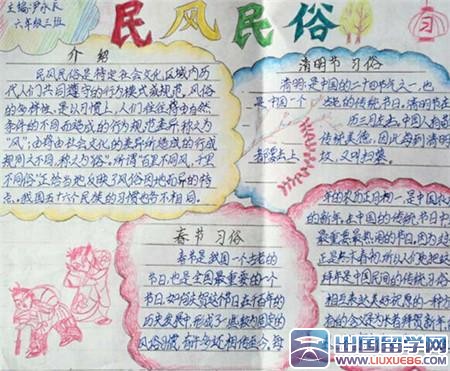 主编:尹永长
六年级三班
民风民俗
习
介绍
民风民俗是特定社会文化区域内历
代人们共同遵守的行为模式或规范。风俗
的多样性,是以习惯上,人们往往将由自然
条件的不同而造成的行为规范差异,称之为
"风";由将由社会文化的差异所造成的行成
规则之不同,称之为"俗"。所谓"百里不同风,千里
不同俗"正恰当地反映了风俗因地而异的特
点。我国五十六个民族的习惯也各不相同。
清明节习俗
清明,是中国的二十四节气之一,也
是中国一个
的传统节日。清明节在
历三月
中国人
传统美德,因此每到清明
都要去上
坟,又叫扫墓
春节习俗
春节是我国一个古老的
节日,也是全国最重要的一个
节日,如何庆贺这个节日,在千百年的
历史发展中,形成了一些较为固定的
风俗习惯,有许多还相传至今。每
年的农历正月初一,是中国农历
的新年。在中国的传统节日中
最重要最热闹的节日。因为过
拜年是中国民间的传统习俗
相互表达美好祝愿的一种方
出国留学网
www.liuxue86.com